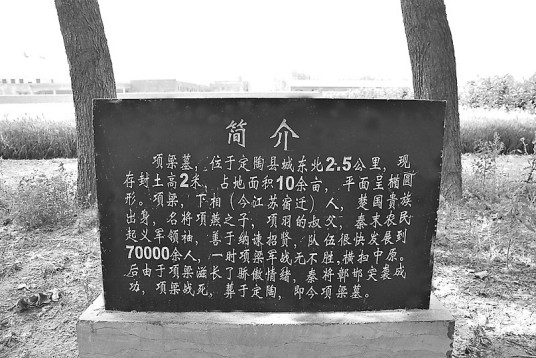 简 介
项梁墓，位于定陶县城东北2.5公里，现
存封土高2米，占地面积10余亩，平面呈椭圆
形。项梁，下相（今江苏宿迁）人，楚国贵族
出身，名将项燕之子，项羽的叔父，秦末农民
起义军领袖，善于纳谏招贤，队伍很快发展到
70000余人，一时项梁军战无不胜，横扫中原。
后由于项梁滋长了骄傲情绪，秦将邯郸突袭成
功，项梁战死，葬于定陶，即今项梁墓。